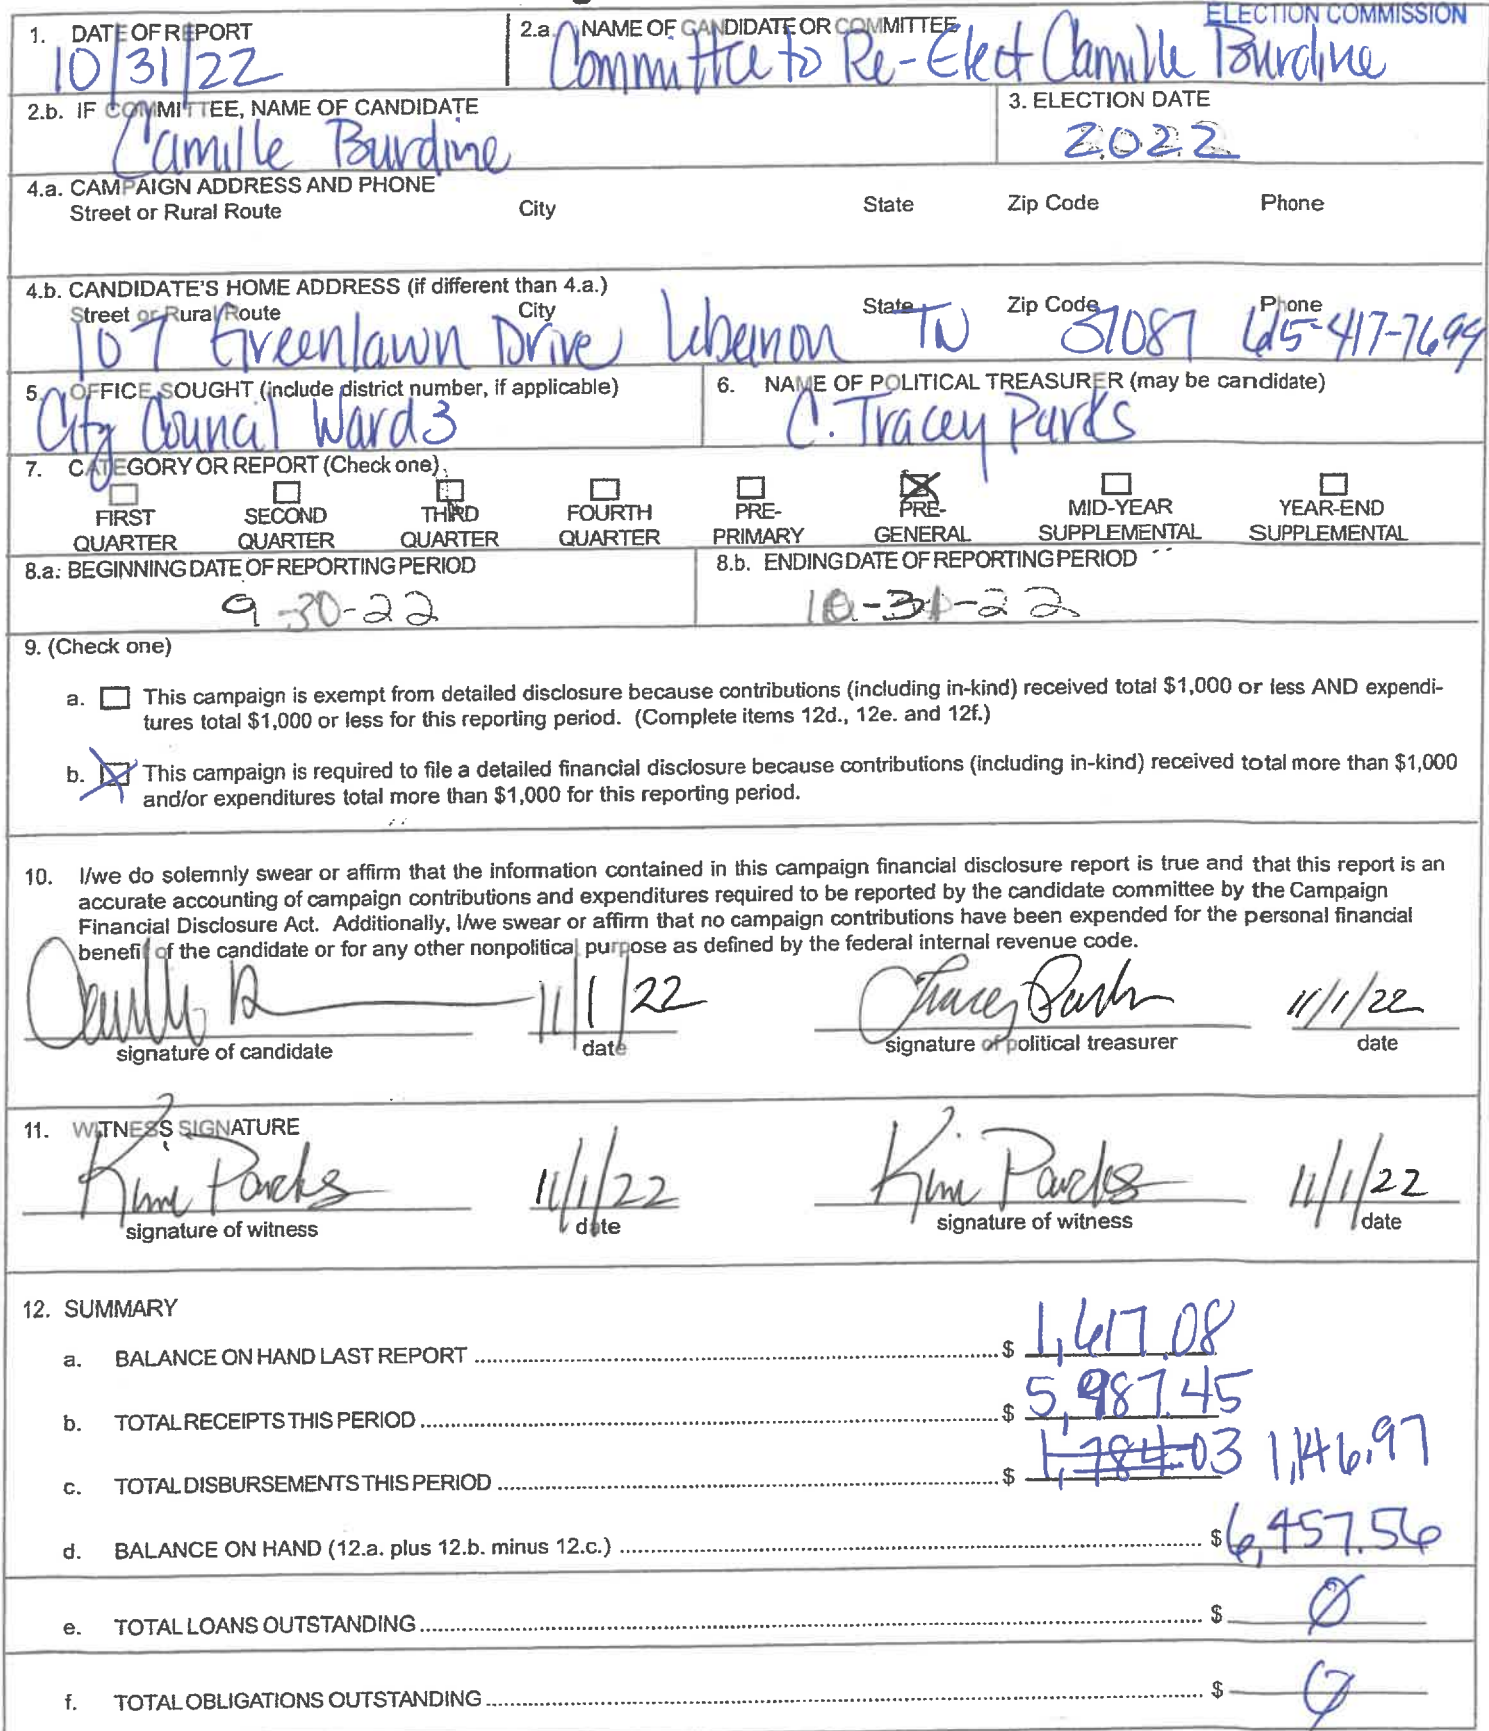 ELECTION COMMISSION
1. DATE OF REPORT 2.a. NAME OF CANDIDATE OR COMMITTEE
10/31/22 Committee to Re-Elect Camille Burdine
2.b. IF COMMITTEE, NAME OF CANDIDATE 3. ELECTION DATE
Camille Burdine 2022
4.a. CAMPAIGN ADDRESS AND PHONE
Street or Rural Route City State Zip Code Phone
4.b. CANDIDATE'S HOME ADDRESS (if different than 4.a.)
Street or Rural Route City State Zip Code Phone
107 Greenlawn Drive Lebanon TN 37087 615-417-7699
5. OFFICE SOUGHT (include district number, if applicable) 6. NAME OF POLITICAL TREASURER (may be candidate)
City Council Ward 3 C. Tracey Parks
7. CATEGORY OR REPORT (Check one)
FIRST SECOND THIRD FOURTH PRE- PRE- MID-YEAR YEAR-END
QUARTER QUARTER QUARTER QUARTER PRIMARY GENERAL SUPPLEMENTAL SUPPLEMENTAL
8.a. BEGINNING DATE OF REPORTING PERIOD 8.b. ENDING DATE OF REPORTING PERIOD
9-30-22 10-31-22
9. (Check one)
a. This campaign is exempt from detailed disclosure because contributions (including in-kind) received total $1,000 or less AND expendi-
tures total $1,000 or less for this reporting period. (Complete items 12d., 12e. and 12f.)
b. This campaign is required to file a detailed financial disclosure because contributions (including in-kind) received total more than $1,000
and/or expenditures total more than $1,000 for this reporting period.
10. I/we do solemnly swear or affirm that the information contained in this campaign financial disclosure report is true and that this report is an
accurate accounting of campaign contributions and expenditures required to be reported by the candidate committee by the Campaign
Financial Disclosure Act. Additionally, I/we swear or affirm that no campaign contributions have been expended for the personal financial
benefit of the candidate or for any other nonpolitical purpose as defined by the federal internal revenue code.
Camille B 11/1/22 Tracey Parks 11/1/22
signature of candidate date signature of political treasurer date
11. WITNESS SIGNATURE
Kim Parks 11/1/22 Kim Parks 11/1/22
signature of witness date signature of witness date
12. SUMMARY
a. BALANCE ON HAND LAST REPORT $ 1,617.08
b. TOTAL RECEIPTS THIS PERIOD $ 5,987.45
c. TOTAL DISBURSEMENTS THIS PERIOD $ 1,784.03 1,146.97
d. BALANCE ON HAND (12.a. plus 12.b. minus 12.c.) $ 6,457.56
e. TOTAL LOANS OUTSTANDING $ 0
f. TOTAL OBLIGATIONS OUTSTANDING $ 0